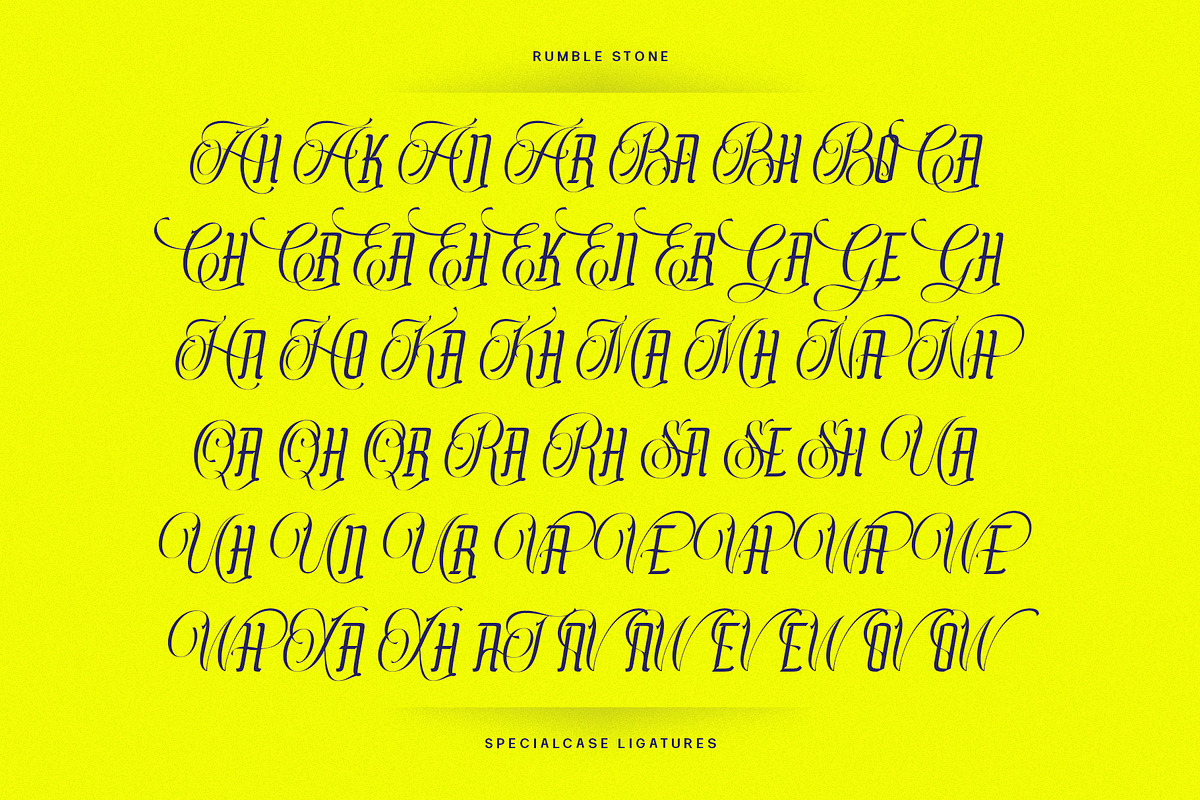 RUMBLE STONE
AH AK AN AR BA BH BO CA
CH CR EA EH EK EN ER GA GE GH
HA HO KA KH MA MH NA NH
QA QH QR RA RH SA SE SH UA
UH UN UR VA VE VH WA WE
WH XA XH AJ AV AW EV EW OV OW
SPECIALCASE LIGATURES